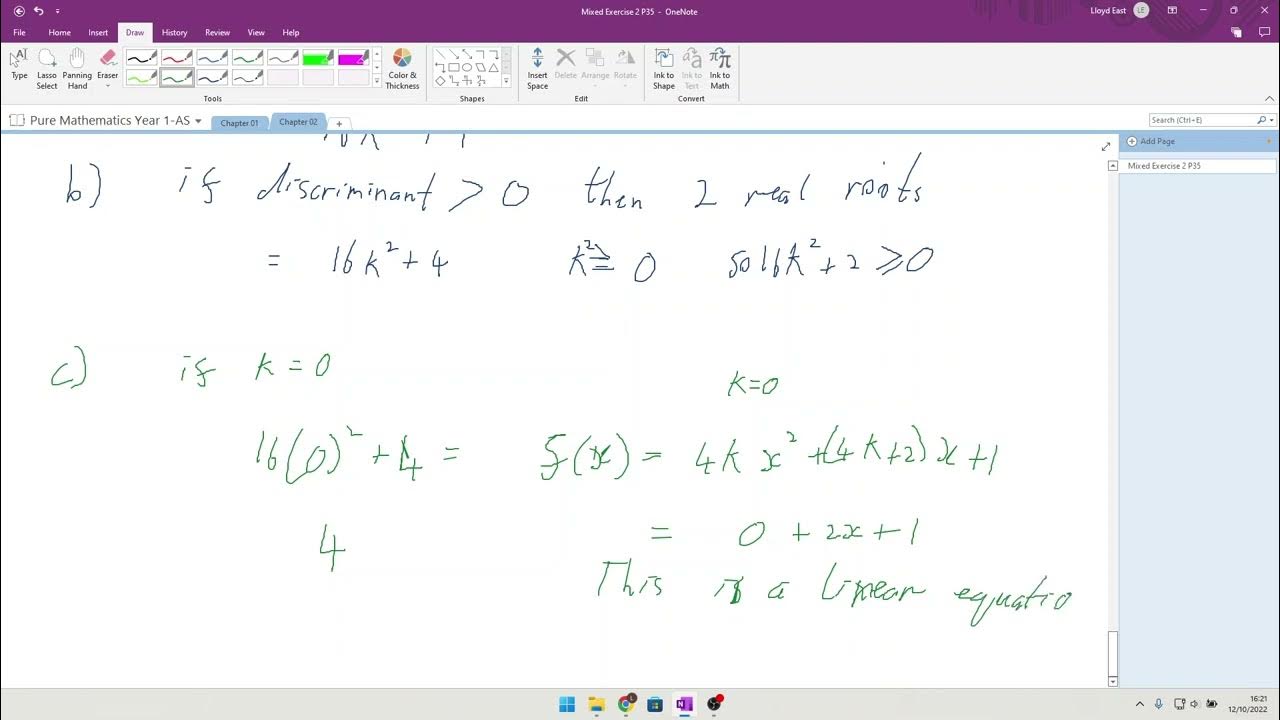 Mixed Exercise 2 P35 - OneNote
Lloyd East LE
File Home Insert Draw History Review View Help
Type Lasso Select Panning Hand Eraser
Color & Thickness
Insert Space Delete Arrange Rotate
Ink to Shape Ink to Text Ink to Math
Tools Shapes Edit Convert
Pure Mathematics Year 1-AS Chapter 01 Chapter 02
Search (Ctrl+E)
Add Page
Mixed Exercise 2 P35
b) if discriminant > 0 then 2 real roots
= 16k² + 4 k² ≥ 0 so 16k² + 2 ≥ 0
c) if k = 0
k=0
16(0)² + 4 = f(x) = 4k x² + (4k+2)x + 1
4 = 0 + 2x + 1
This is a linear equatio
16:21
12/10/2022